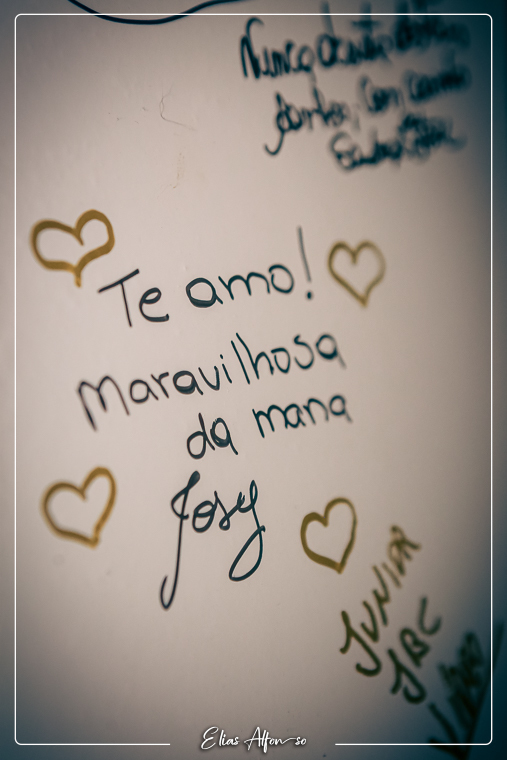 Nunca
sonhos, com carinho
Te amo!
Maravilhosa
da mana
Josy
JUNIOR
JBC
Elias Alfonso